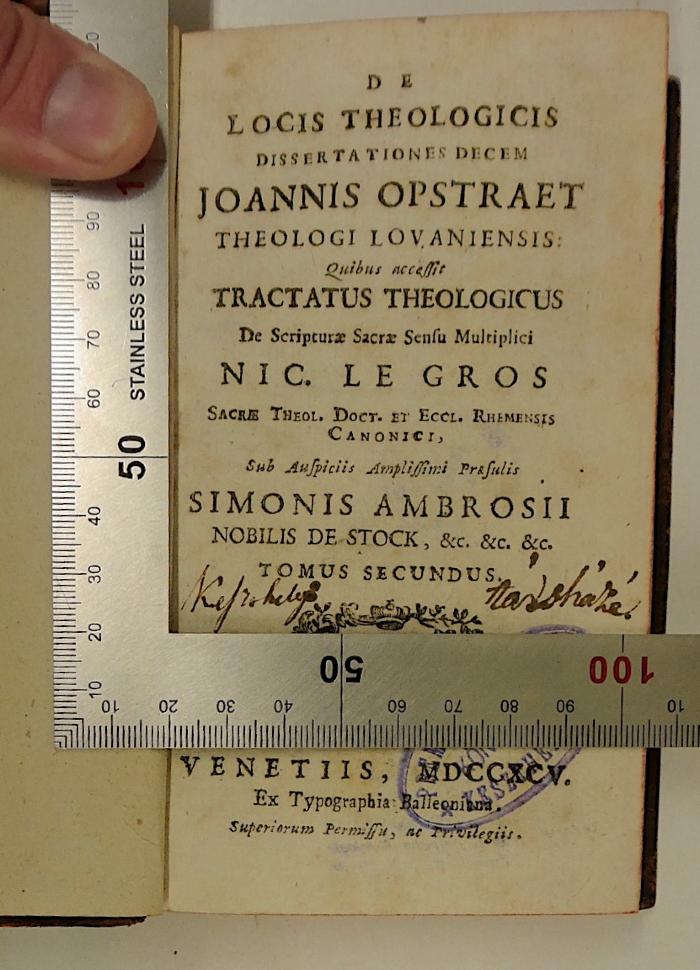 DE
LOCIS THEOLOGICIS
DISSERTATIONES DECEM
JOANNIS OPSTRAET
THEOLOGI LOVANIENSIS:
Quibus accessit
TRACTATUS THEOLOGICUS
De Scripturæ Sacræ Sensu Multiplici
NIC. LE GROS
SACRÆ THEOL. DOCT. ET ECCL. RHEMENSIS
CANONICI,
Sub Auspiciis Amplissimi Præsulis
SIMONIS AMBROSII
NOBILIS DE STOCK, &c. &c. &c.
TOMUS SECUNDUS.
VENETIIS, MDCCXCV.
Ex Typographia Balleoniana.
Superiorum Permissu, ac Privilegiis.
STAINLESS STEEL
90
80
70
60
50
40
30
20
10
10 20 30 40 50 60 70 80 90 100 10